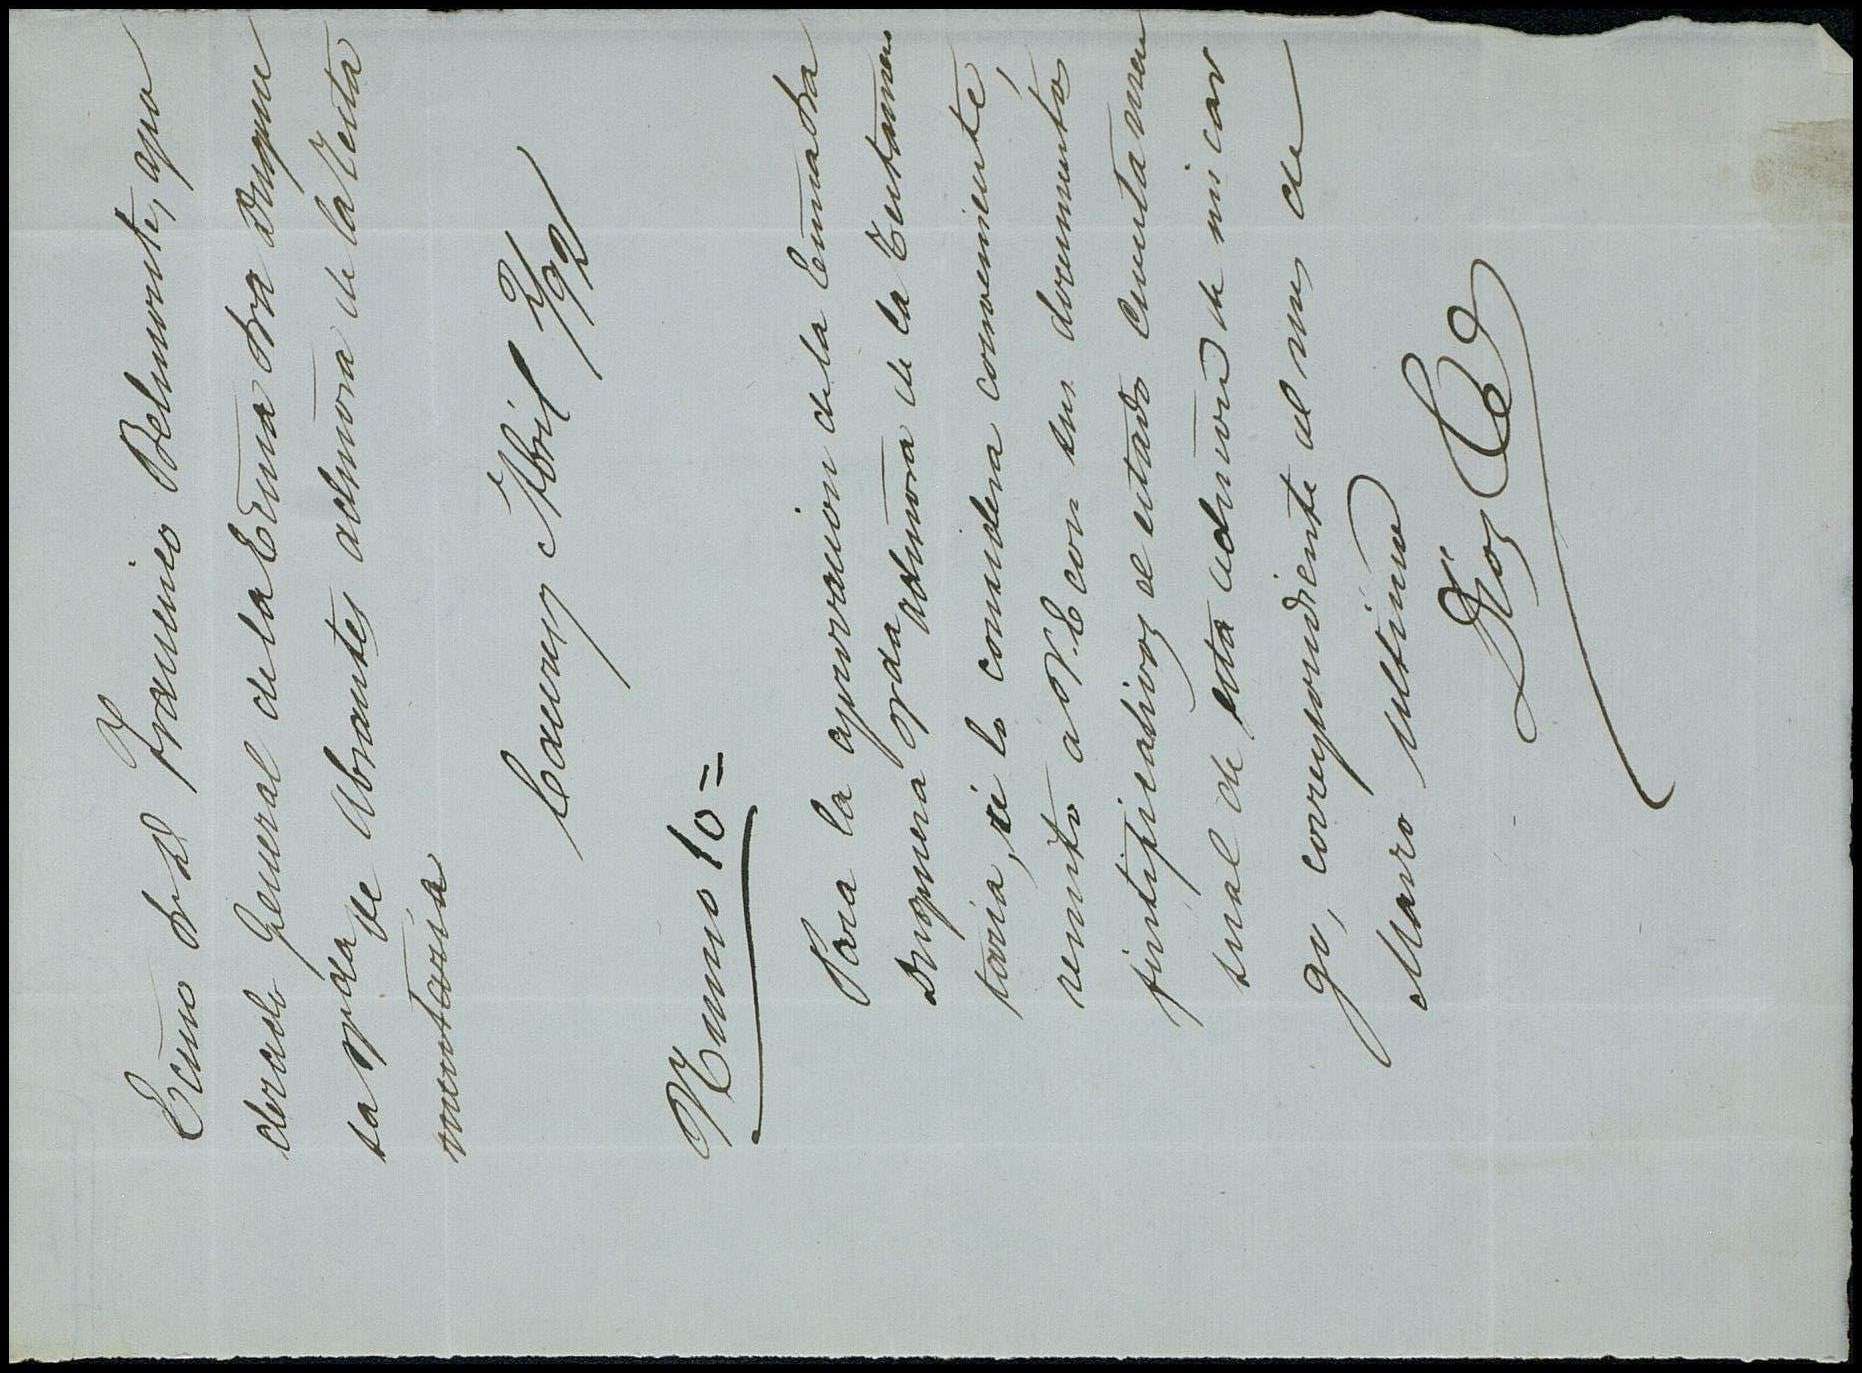 Ecmo Sr D Francisco Belmonte, apo
derado General de la Ecma Sra Duque
sa vda de Abrantes admora de la Testa
mentaria
Caxun, Abril 2/92
Numo 10=
Para la aprovacion de la Ecma Sra
Duquesa vda admora de la Testamen
taria, si lo considera conveniente
remito a V.E con sus documentos
justificativos el estado cuenta men
sual de esta admon de mi car
go, correspondiente al mes de
Marzo ultimo
Dios